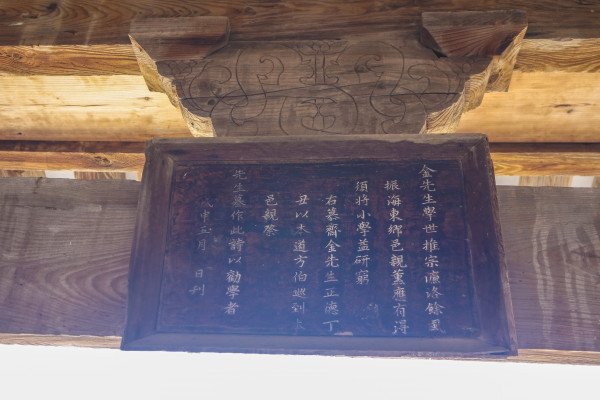 金先生擧世推宗濂洛餘風
振海東鄕邑親薰應有得
須將小學益研窮
右慕齋金先生正德丁
丑以本道方伯巡到本
邑親祭
先生墓作此詩以勸學者
申五月 日刊